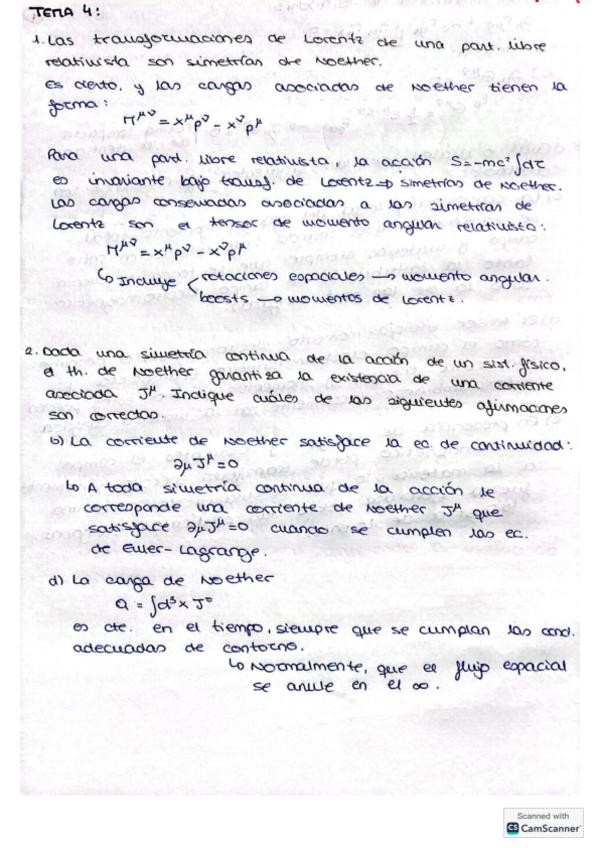 TEMA 4:
1. Las transformaciones de Lorentz de una part. libre
relativista son simetrías de Noether.
Es cierto, y las cargas asociadas de Noether tienen la
forma:
M^μν = x^μ p^ν - x^ν p^μ
Para una part. libre relativista, la acción S = -mc² ∫dτ
es invariante bajo transf. de Lorentz → simetrías de Noether.
Las cargas conservadas asociadas a las simetrías de
Lorentz son el tensor de momento angular relativista:
M^μν = x^μ p^ν - x^ν p^μ
↳ Incluye rotaciones espaciales → momento angular.
boosts → momentos de Lorentz.
2. Dada una simetría continua de la acción de un sist. físico,
el th. de Noether garantiza la existencia de una corriente
asociada J^μ. Indique cuáles de las siguientes afirmaciones
son correctas.
b) La corriente de Noether satisface la ec. de continuidad:
∂μ J^μ = 0
↳ A toda simetría continua de la acción le
corresponde una corriente de Noether J^μ que
satisface ∂μ J^μ = 0 cuando se cumplen las ec.
de Euler-Lagrange.
d) La carga de Noether
Q = ∫d³x J⁰
es cte. en el tiempo, siempre que se cumplan las cond.
adecuadas de contorno.
↳ Normalmente, que el flujo espacial
se anule en el ∞.
Scanned with
CS CamScanner